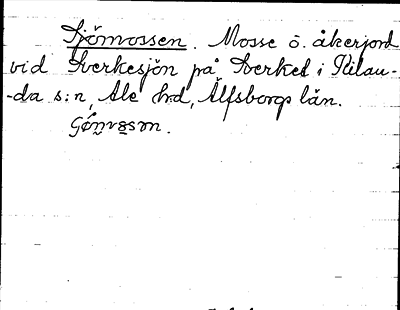 Sjömossen. Mosse o. åkerjord
vid Sverkesjön på Sverket i Skilau-
-da s:n, Ale hd, Älfsborgs län.